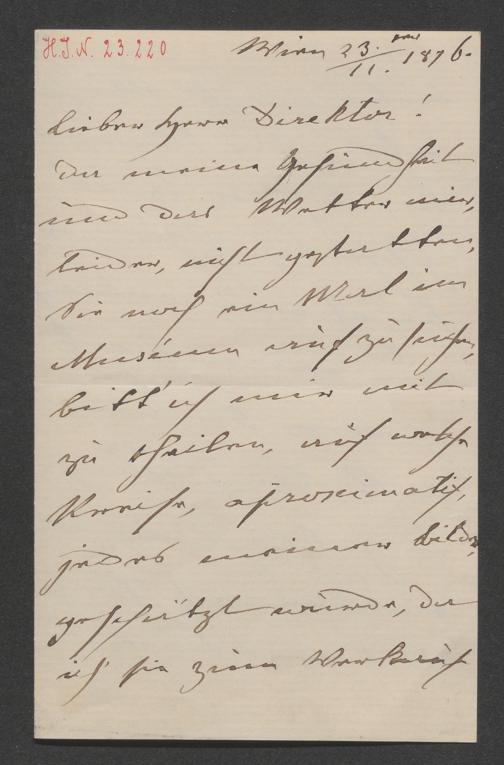 H.I.N. 23.220
Wien 23./11. 1876.
Lieber Herr Direktor!
Da meine Gesundheit
und das Wetter mir,
leider, nicht gestatten,
Sie noch ein Mal im
Museum auf zu suchen,
bitt' ich mir mit
zu theilen, auf welche
Preise, aproximatif,
jedes meiner Bilder,
geschätzt wurde, da
ich sie zum Verkauf